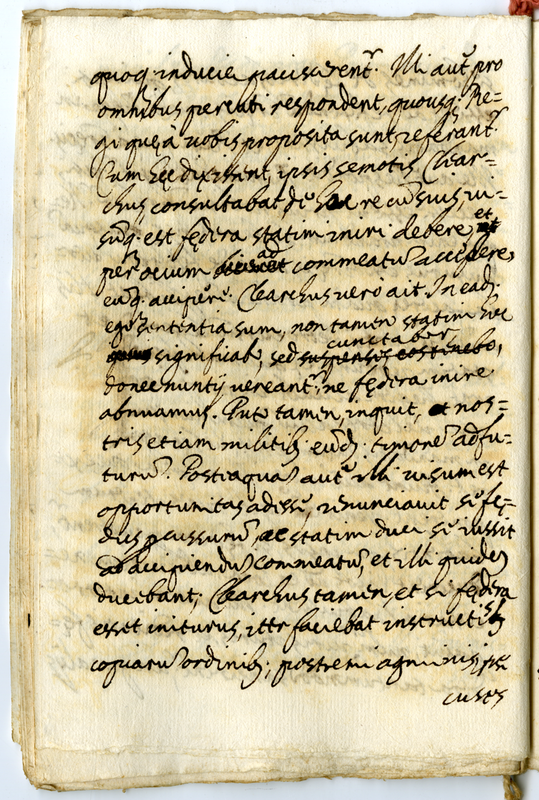 quoq; inducię paciscerent̃. Illi aut̃ pro
omnibus percuti respondent, quousq; Re=
gi quę à vobis proposita sunt, referant̃.
Cum hęc dixissent, ipsis semotis Clear=
chus consultabat de hac re cũ suis, vi=
sũq; est fędera statim iniri debere, et
per ocium ad commeatũ accedere,
eũq; accipere. Clearchus vero ait. In eadẽ
ego sententia sum, non tamen statim hoc
significabo, sed cunctabor,
donec nuntij vereant̃, ne fędera inire
abnuamus. Puto tamen, inquit, nos=
tris etiam militib; eũd; timorẽ adfu=
turũ. Postea quã aut̃ illi visum est
opportunitas adesse, renunciavit se fę=
dus pcussurũ, ac statim duci se iussit
ad accipiendũ commeatũ, et illi quidẽ
ducebant; Clearchus tamen, et si fędera
esset initurus, iter faciebat instructis
copiarũ ordinib;, postremi agminis, ipse
custos